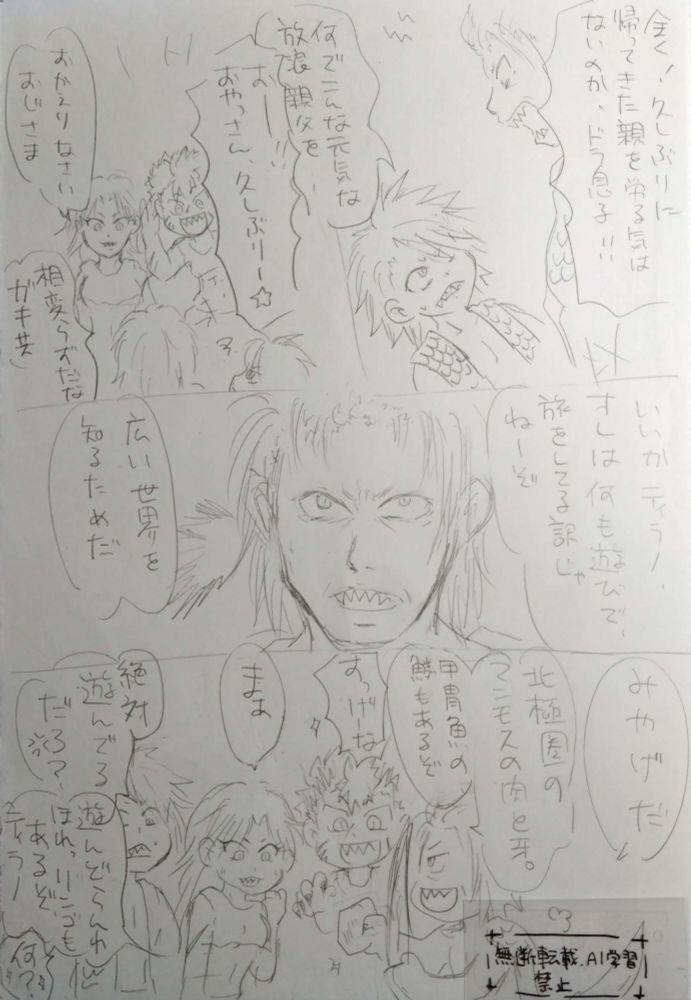 全く!、久しぶりに
帰ってきた親を労る気は
ないのか、ドラ息子!!
何でこんな元気な
放浪親父を…
おーー!!
おやっさん、久しぶりー☆
おかえりなさい
おじさま
相変らずだな
ガキ共
いいかティラノ、
オレは何も遊びで、
旅をしてる訳じゃ
ねーぞ
広い世界を
知るためだ
みやげだ
北極圏の
マンモスの肉と牙。
甲冑魚の
鱗もあるぞ
すっげーな
まぁ
絶対
遊んでる
だろ?
遊んどらんわ
ほれっリンゴも
あるぞ、
ティラノ
何?
無断転載、AI学習
禁止